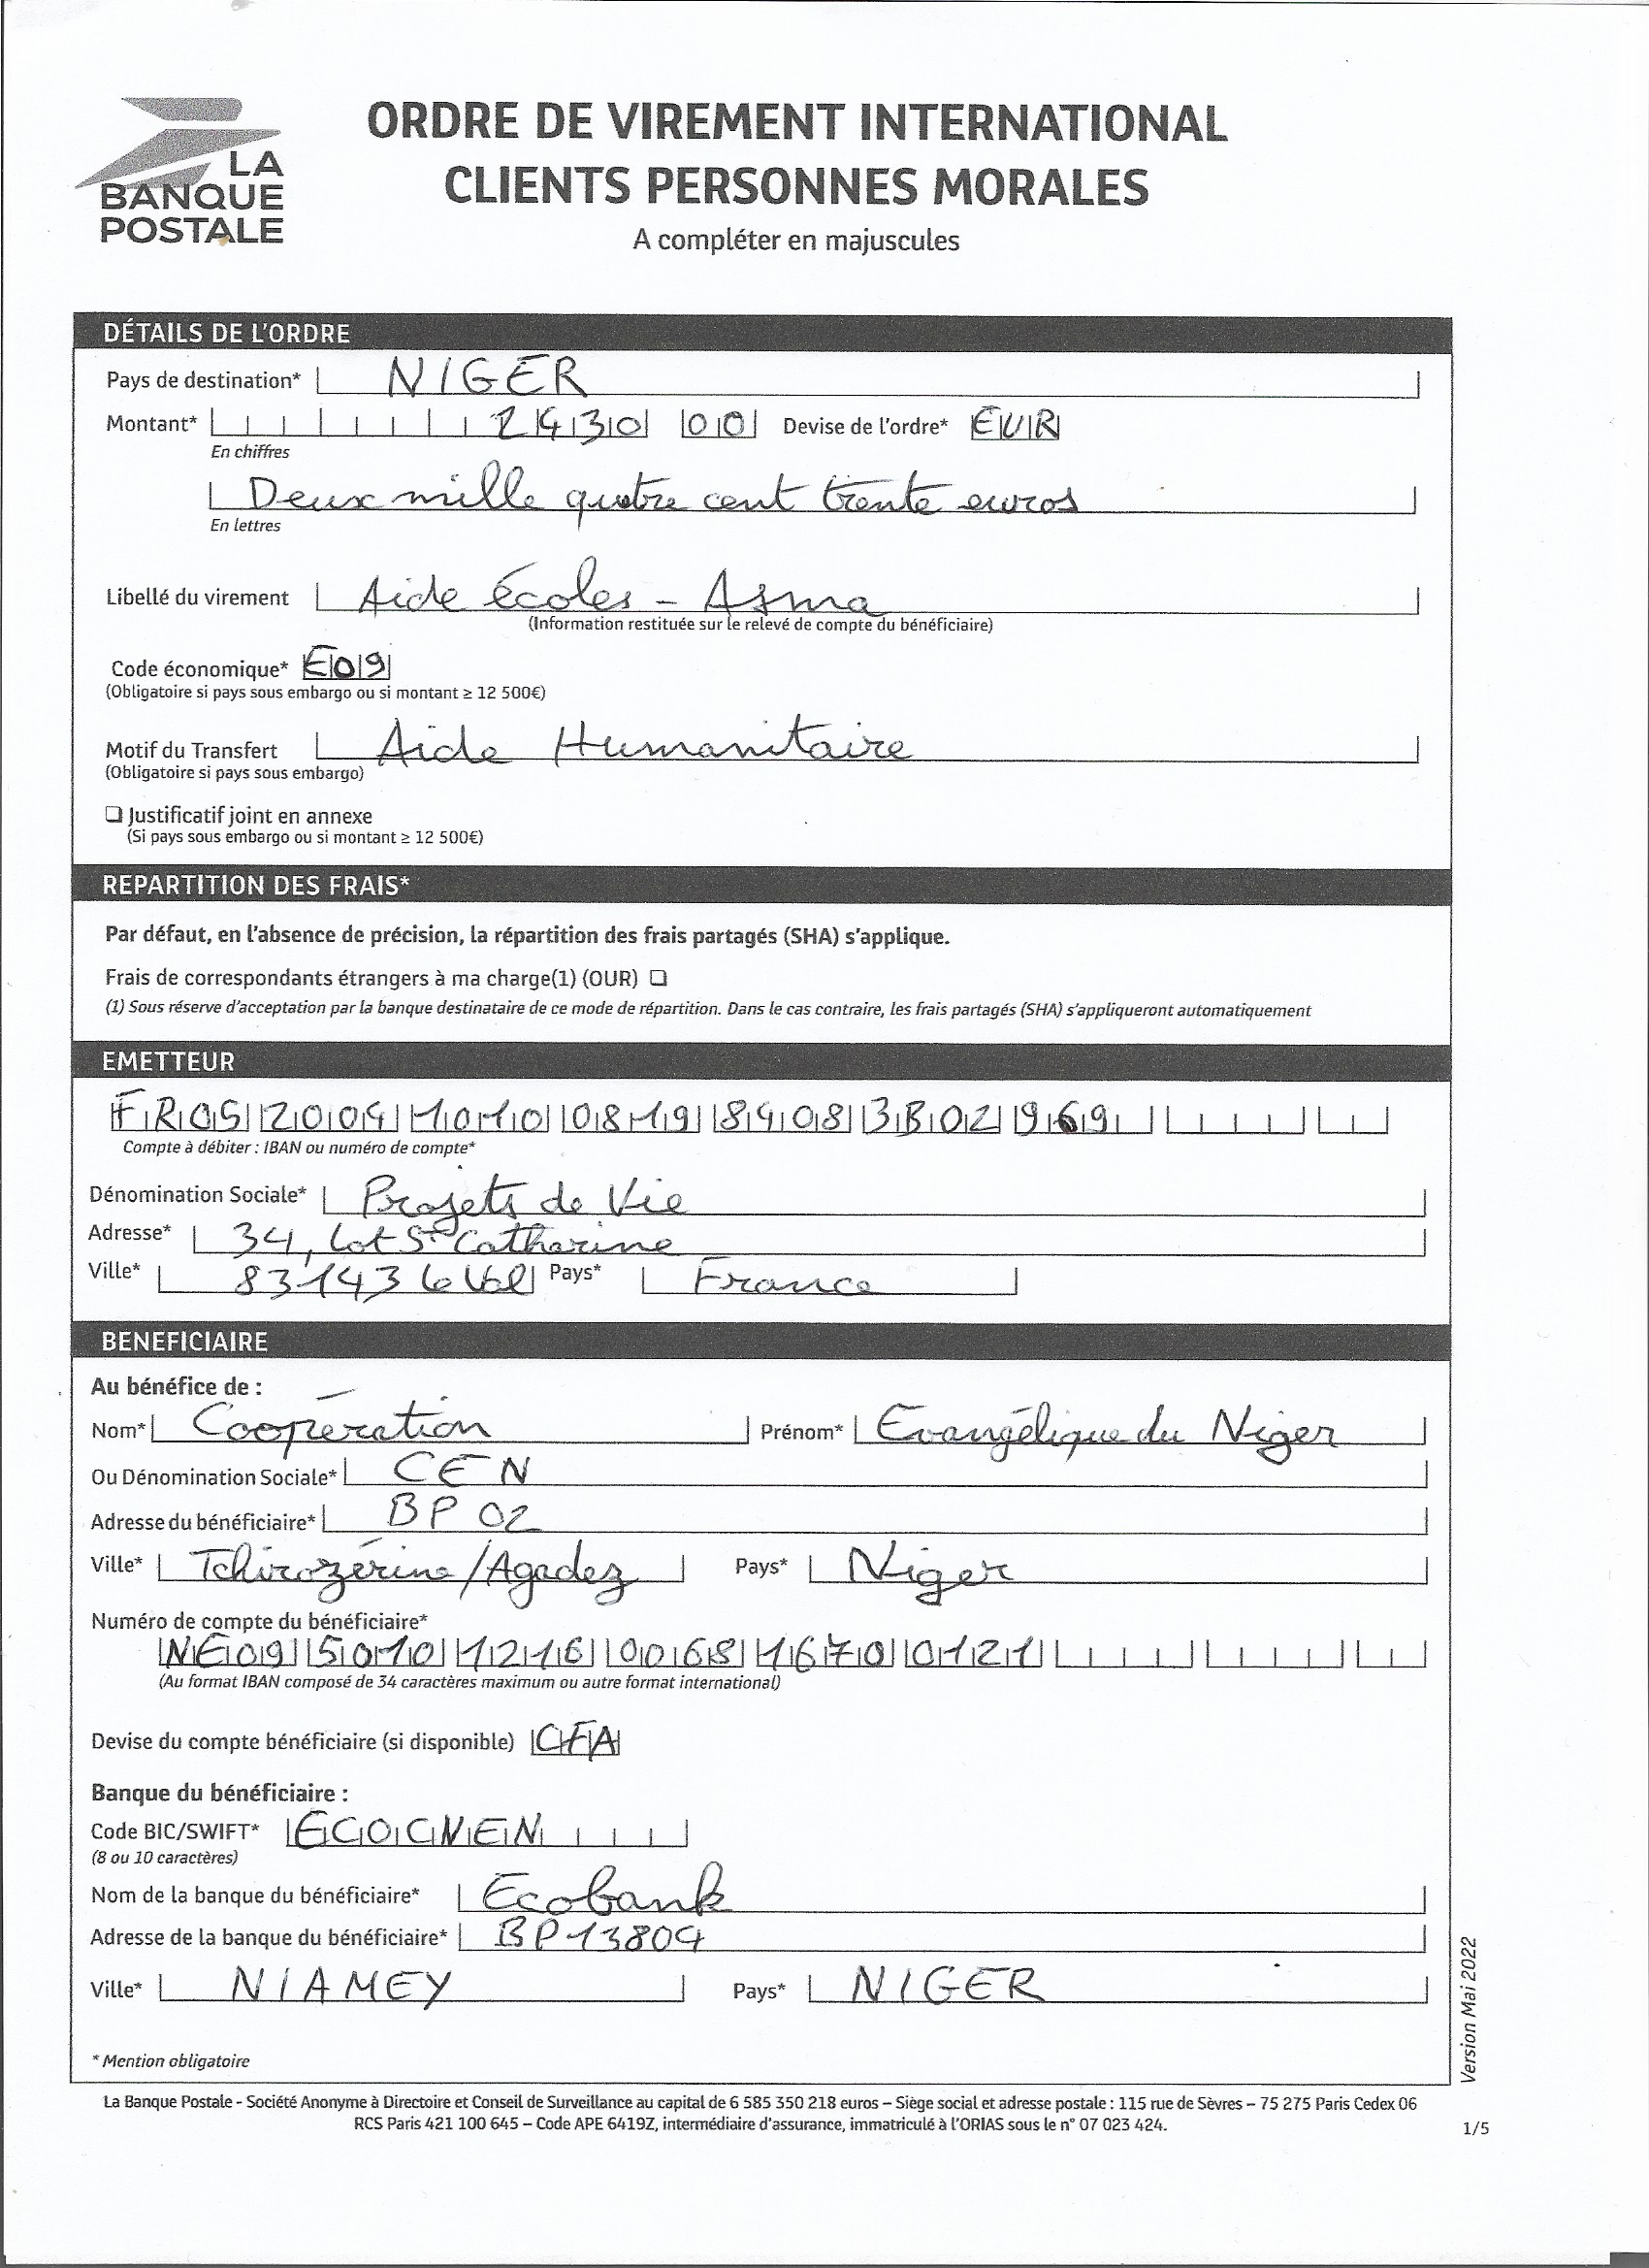 LA
BANQUE
POSTALE
ORDRE DE VIREMENT INTERNATIONAL
CLIENTS PERSONNES MORALES
A compléter en majuscules
DÉTAILS DE L'ORDRE
Pays de destination* NIGER
Montant* 2430 00 Devise de l'ordre* EUR
En chiffres
Deux mille quatre cent trente euros
En lettres
Libellé du virement Aide écoles - Asma
(Information restituée sur le relevé de compte du bénéficiaire)
Code économique* E09
(Obligatoire si pays sous embargo ou si montant ≥ 12 500€)
Motif du Transfert Aide Humanitaire
(Obligatoire si pays sous embargo)
❏ Justificatif joint en annexe
(Si pays sous embargo ou si montant ≥ 12 500€)
REPARTITION DES FRAIS*
Par défaut, en l'absence de précision, la répartition des frais partagés (SHA) s'applique.
Frais de correspondants étrangers à ma charge(1) (OUR) ❏
(1) Sous réserve d'acceptation par la banque destinataire de ce mode de répartition. Dans le cas contraire, les frais partagés (SHA) s'appliqueront automatiquement
EMETTEUR
FR05 2004 1010 0819 8408 3B02 969
Compte à débiter : IBAN ou numéro de compte*
Dénomination Sociale* Projets de Vie
Adresse* 34, Lot Ste Catherine
Ville* 83143 le Val Pays* France
BENEFICIAIRE
Au bénéfice de :
Nom* Coopération Prénom* Evangélique du Niger
Ou Dénomination Sociale* CEN
Adresse du bénéficiaire* BP 02
Ville* Tchirozérine/Agadez Pays* Niger
Numéro de compte du bénéficiaire*
NE09 5010 1216 0068 1670 0121
(Au format IBAN composé de 34 caractères maximum ou autre format international)
Devise du compte bénéficiaire (si disponible) CFA
Banque du bénéficiaire :
Code BIC/SWIFT* ECOCNEN
(8 ou 10 caractères)
Nom de la banque du bénéficiaire* Ecobank
Adresse de la banque du bénéficiaire* BP 13804
Ville* NIAMEY Pays* NIGER
* Mention obligatoire
Version Mai 2022
La Banque Postale - Société Anonyme à Directoire et Conseil de Surveillance au capital de 6 585 350 218 euros – Siège social et adresse postale : 115 rue de Sèvres – 75 275 Paris Cedex 06
RCS Paris 421 100 645 – Code APE 6419Z, intermédiaire d'assurance, immatriculé à l'ORIAS sous le n° 07 023 424.
1/5